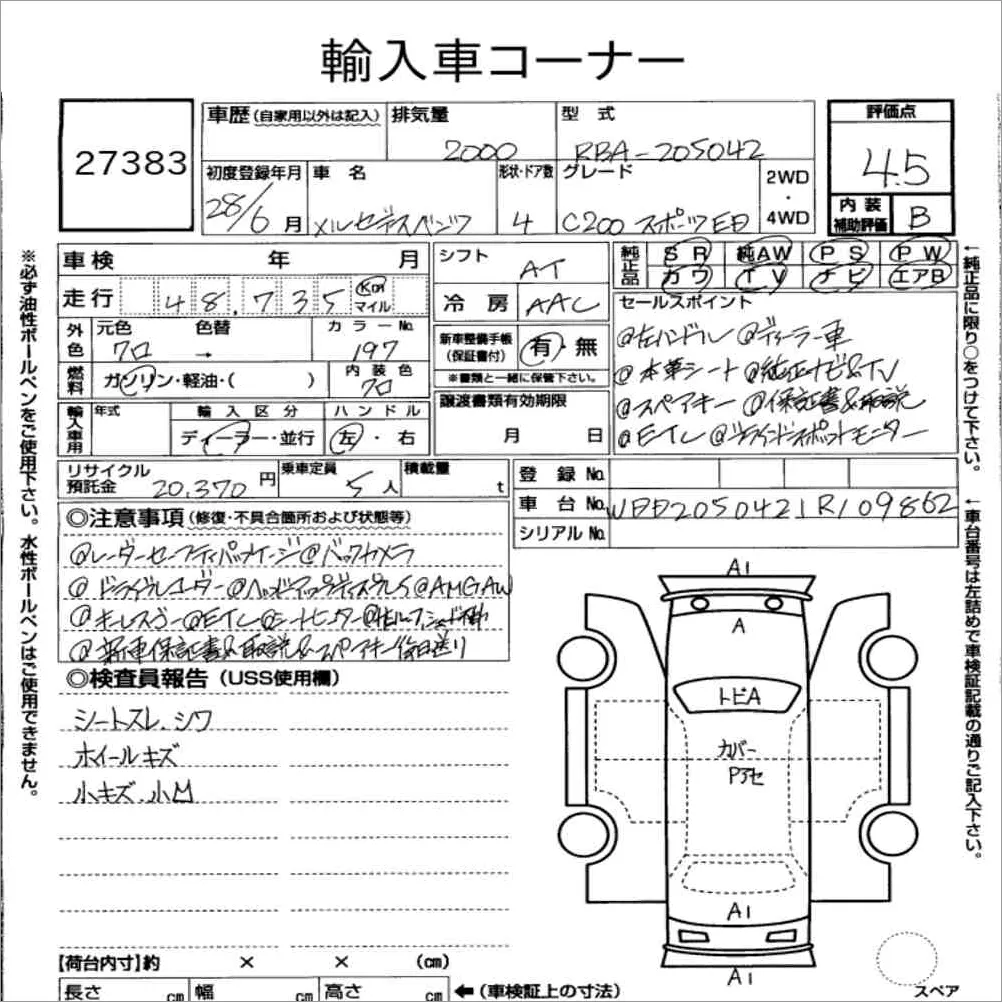 輸入車コーナー
27383
車歴 (自家用以外は記入)
排気量
2000
型式
RBA-205042
評価点
4.5
内装補助評価 B
初度登録年月
28/6月
車名
メルセデスベンツ
形状・ドア数
4
グレード
C200 スポーツ ED
2WD
・
4WD
車検 年 月
走行 48,735 Km マイル
シフト AT
冷房 AAC
純正品 SR 純AW PS PW
カワ TV ナビ エアB
外色 元色 色替 カラーNo.
クロ → 197
燃料 ガソリン・軽油・( )
内装色 クロ
新車整備手帳(保証書付) 有・無
※書類と一緒に保管下さい。
セールスポイント
@左ハンドル @ディーラー車
@本革シート @純正ナビ&TV
@スペアキー @保証書&取説
@ETC @ブラインドスポットモニター
輸入車用 年式 輸入区分 ハンドル
ディーラー・並行 左・右
譲渡書類有効期限
月 日
リサイクル預託金 20,370円
乗車定員 5人
積載量 t
登録No.
車台No. WDD2050421R109862
シリアルNo.
◎注意事項 (修復・不具合箇所および状態等)
@レーダーセーフティパッケージ @バックカメラ
@ドライブレコーダー @ヘッドアップディスプレイ @AMGAW
@キーレスゴー @ETC @シートヒーター
@新車保証書&取説&スペアキー後日送り
◎検査員報告 (USS使用欄)
シートスレ、シワ
ホイールキズ
小キズ、小凹
A1
A
トビA
カバー
Pアセ
A1
A1
スペア
【荷台内寸】約 × × (cm)
長さ cm 幅 cm 高さ cm
←(車検証上の寸法)
※必ず油性ボールペンをご使用下さい。水性ボールペンはご使用できません。
←純正品に限り○をつけて下さい。
←車台番号は左詰めで車検証記載の通りご記入下さい。